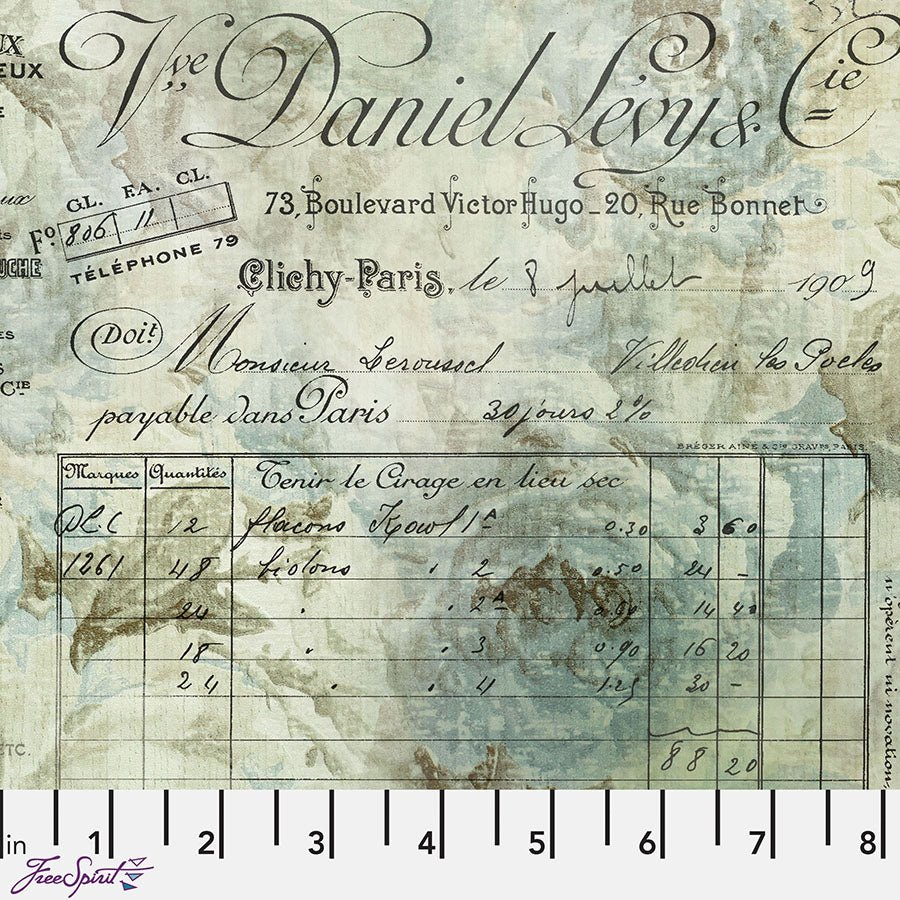 Vve Daniel Lévy & Cie
UX
EUX
GL. F.A. C.L.
Fº 806 11
TÉLÉPHONE 79
73, Boulevard Victor Hugo _ 20, Rue Bonnet
UCHE
Clichy-Paris, le 8 juillet 1909
Doit Monsieur Leroussel Villedieu les Poeles
CIE
payable dans Paris 30 jours 2%
BRÉGER AINÉ & Cie GRAVrs, PARIS
Marques Quantités Tenir le Cirage en lieu sec
DLC 12 flacons Kowl 1A 0.30 3 60
1261 48 bidons " 2 0.50 24 -
24 " " 2A 0.60 14 40
18 " " 3 0.90 16 20
24 " " 4 1.25 30 -
88 20
ETC.
n'opèrent ni novation
in 1 2 3 4 5 6 7 8
FreeSpirit